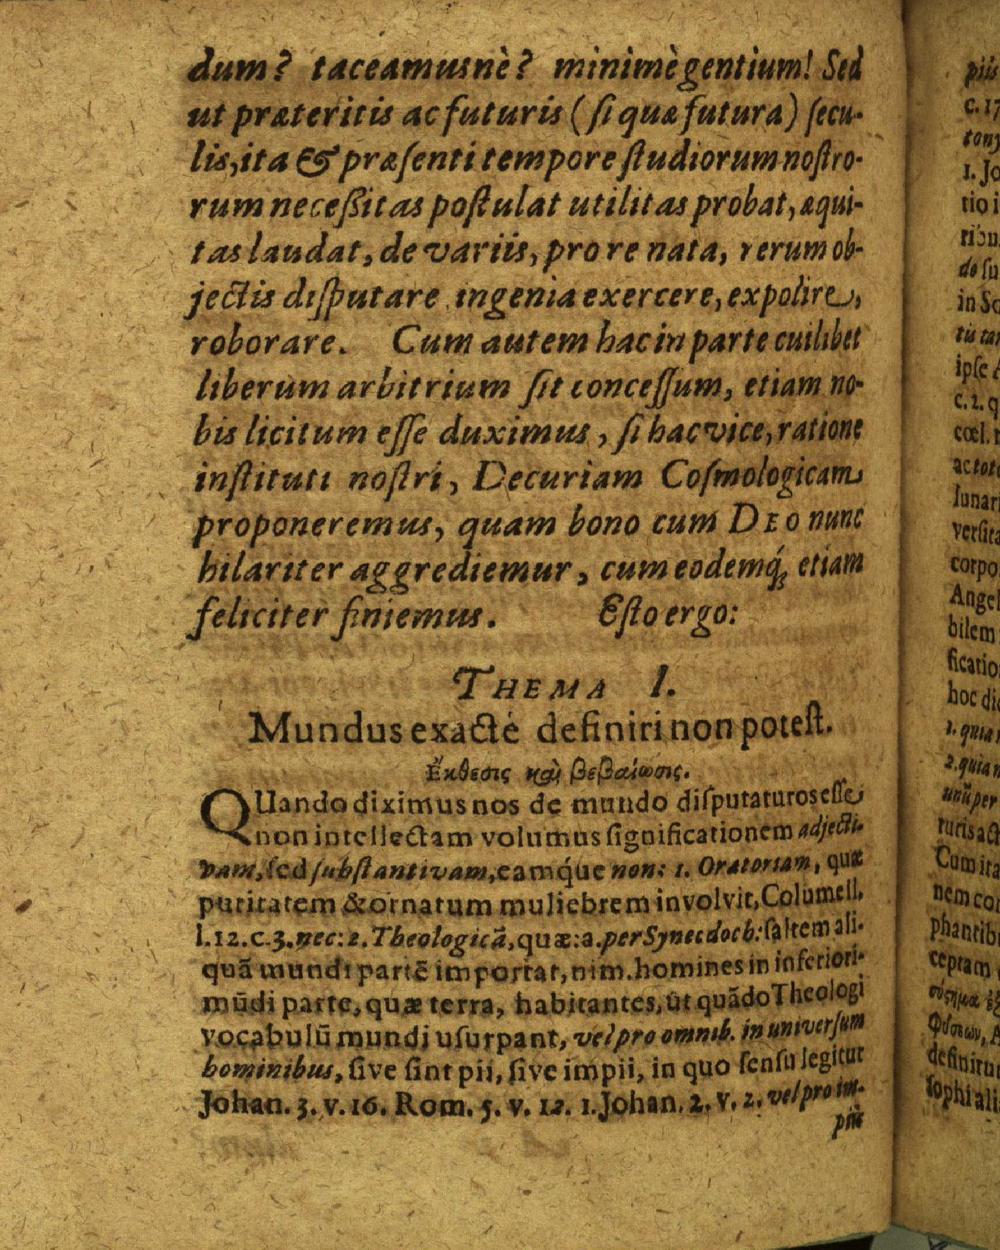 dum? taceamusnè? minimè gentium! Sed
ut præteritis ac futuris (ſi quæ futura) ſecu-
lis, ita & præſenti tempore ſtudiorum noſtro-
rum neceßitas poſtulat utilitas probat, æqui-
tas laudat, de variis, pro re nata, rerum ob-
jectis diſputare ingenia exercere, expolire,
roborare. Cum autem hac in parte cuilibet
liberum arbitrium ſit conceſſum, etiam no-
bis licitum eſſe duximus, ſi hac vice, ratione
inſtituti noſtri, Decuriam Coſmologicam
proponeremus, quam bono cum DEO nunc
hilariter aggrediemur, cum eodemq́; etiam
feliciter finiemus. Eſto ergo:
THEMA I.
Mundus exactè definiri non poteſt.
Ἔκθεσις καὶ βεβαίωσις.
QUando diximus nos de mundo diſputaturos eſſe
non intellectam volumus ſignificationem adjecti-
vam, ſed ſubſtantivam, eamq́ue non: 1. Oratoriam, quæ
puritatem & ornatum muliebrem involvit, Columell.
l. 12. c. 3. nec: 2. Theologicã, quæ: a. per Synecdoch: ſaltem ali-
quã mundi partẽ importat, nim. homines in inferiori-
mũdi parte, quæ terra, habitantes, ût quãdo Theologi
vocabulũ mundi uſurpant, vel pro omnib. in univerſum
hominibus, ſive ſint pii, ſive impii, in quo ſenſu legitur
Johan. 3. v. 16. Rom. 5. v. 12. 1. Johan. 2. v. 2. vel pro im-
piis
piis
c. 17
1. Jo
tio i
ribu
do ſu
in Sc
ipſe
c. 2. q
cœl.
ac tot
lunar
verſit
corpo
Angel
bilem
ficatio
hoc di
1. quia
2. quia n
unũ per
turis act
Cum ita
nem co
phantib
ceptam
definitu
ſophi ali